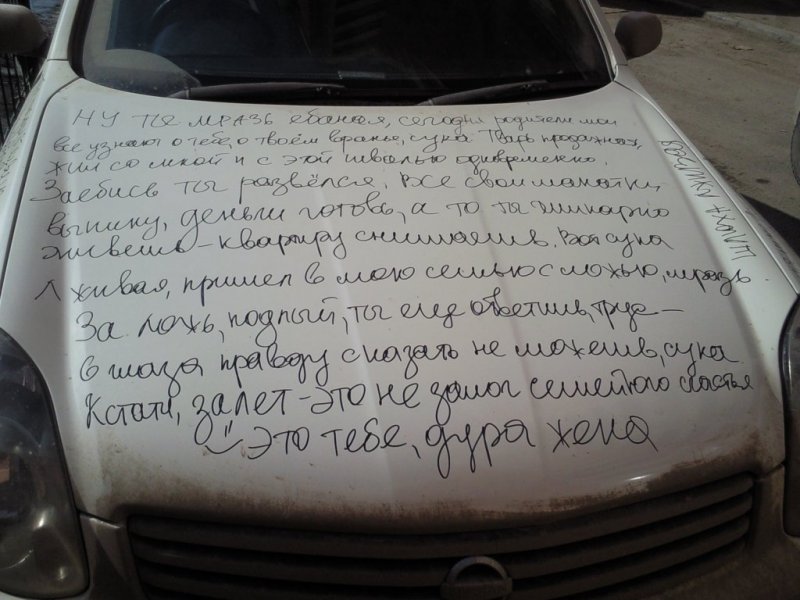 НУ ТЫ МРАЗЬ ебаная, сегодня родители мои
все узнают о тебе, о твоём вранье, сука Тварь продажная,
жил со мной и с этой швалью одновременно,
Заебись ты развёлся, все свои манатки
выкину, деньги готовь, а то ты шикарно
живешь - квартиру снимаешь. Вот сука
Лживая, пришел в мою семью с ложью, мразь.
За ложь, подлый, ты еще ответишь, трус -
в глаза правду сказать не можешь, сука
Кстати, залет - это не залог семейного счастья
это тебе, дура жена
ШЛЮХА